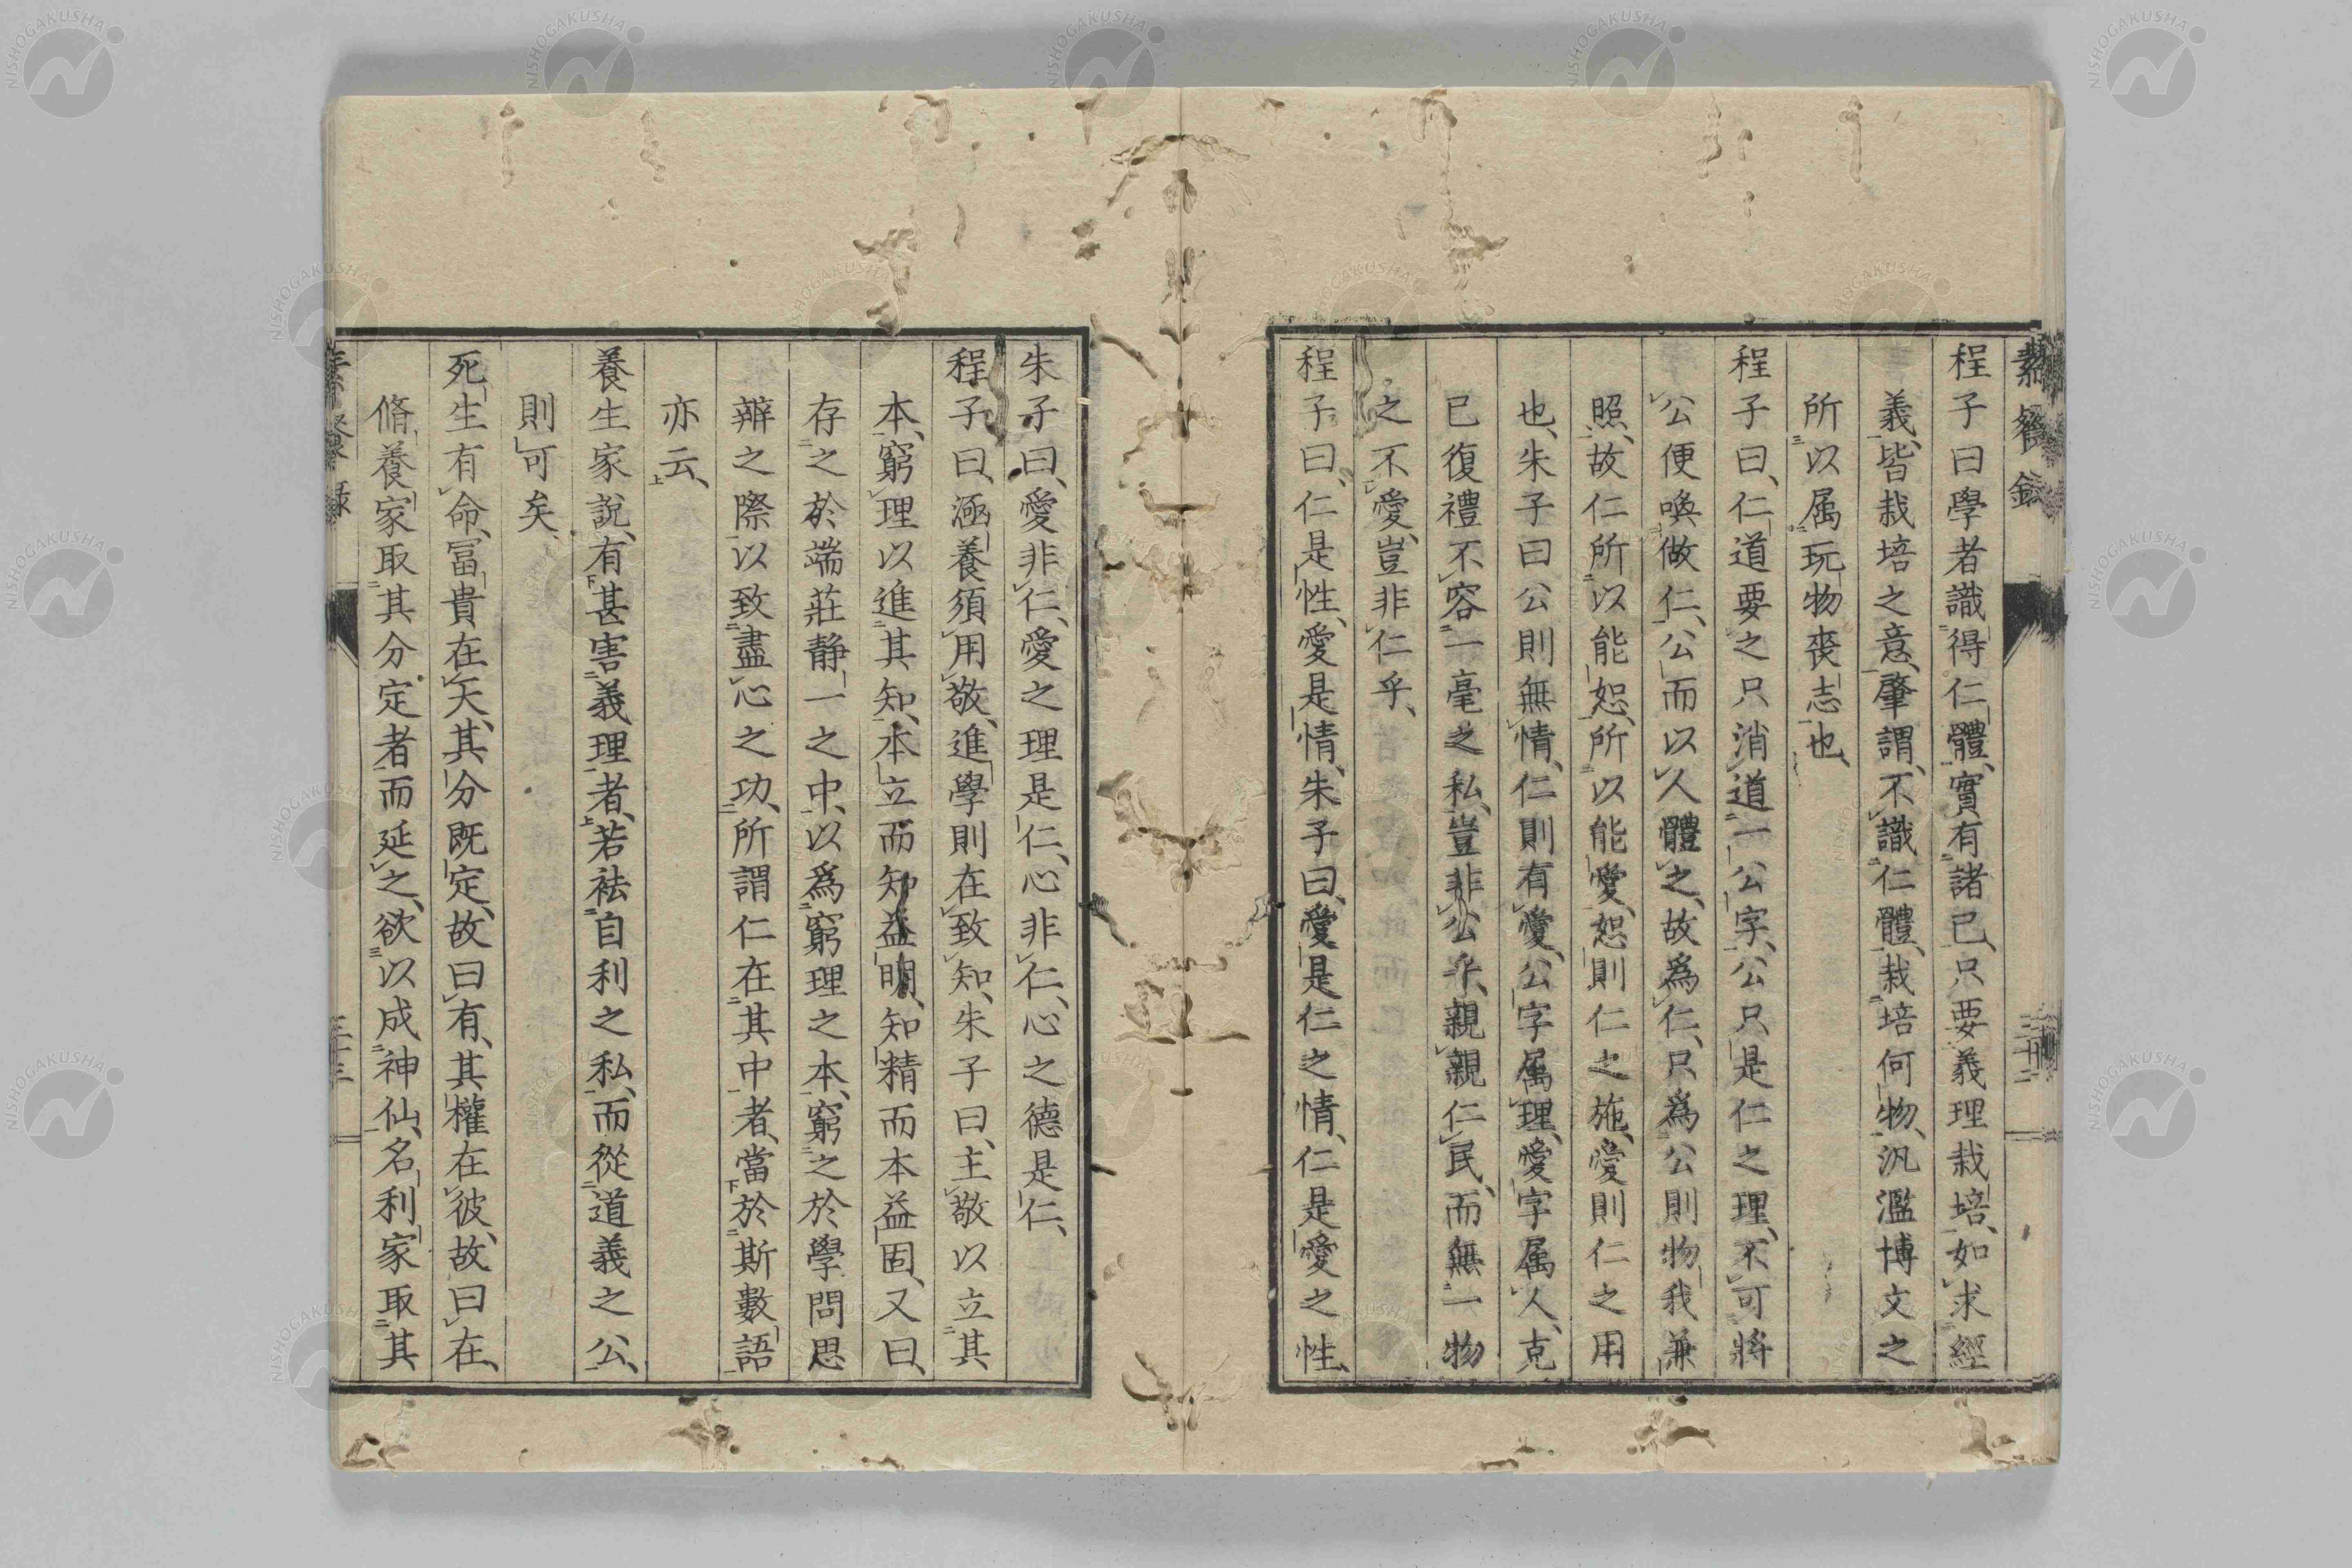 素餐録
程子曰學者識得仁體、實有諸己、只要義理栽培、如求經
義、皆栽培之意、肇謂、不識仁體、栽培何物、汎濫博文之
所以属玩物喪志也、
程子曰、仁道要之只消道一公字、公只是仁之理、不可將
公便喚做仁、公而以人體之、故為仁、只為公則物我兼
照、故仁所以能恕、所以能愛、恕則仁之施、愛則仁之用
也、朱子曰公則無情、仁則有愛、公字属理、愛字属人、克
已復禮不容一毫之私、豈非公乎、親親仁民、而無一物
之不愛、豈非仁乎、
程子曰、仁是性、愛是情、朱子曰、愛是仁之情、仁是愛之性、
朱子曰、愛非仁、愛之理是仁、心非仁、心之德是仁、
程子曰、涵養須用敬、進學則在致知、朱子曰、主敬以立其
本、窮理以進其知、本立而知益明、知精而本益固、又曰、
存之於端莊静一之中、以為窮理之本、窮之於學問思
辨之際以致盡心之功、所謂仁在其中者、當於斯數語
亦云、
養生家說、有甚害義理者、若袪自利之私、而從道義之公、
則可矣、
死生有命、冨貴在天、其分既定、故曰有、其權在彼、故曰在、
脩養家取其分定者而延之、欲以成神仙、名利家取其
NISHOGAKUSHA